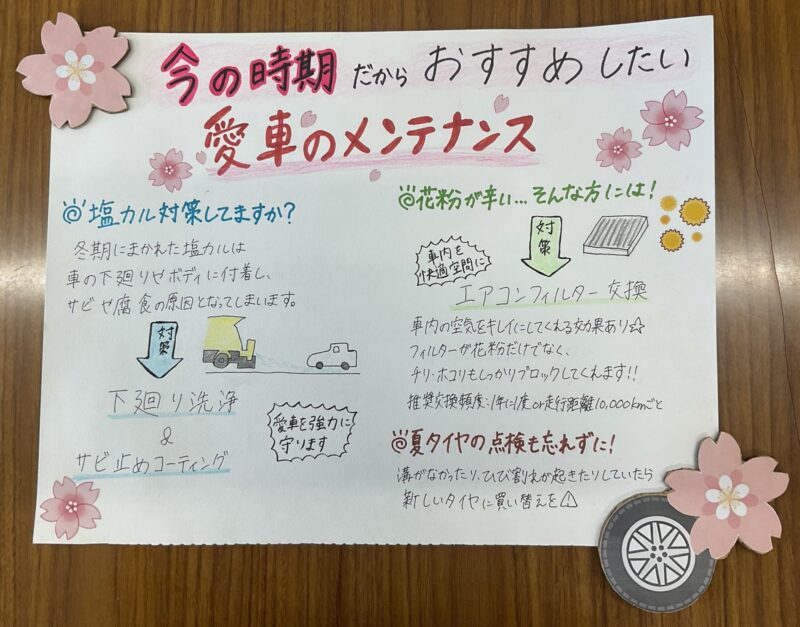 今の時期だからおすすめしたい
愛車のメンテナンス
塩カル対策してますか?
冬期にまかれた塩カルは
車の下廻りやボディに付着し、
サビや腐食の原因となってしまいます。
対策
下廻り洗浄
&
サビ止めコーティング
愛車を強力に
守ります
花粉が辛い…そんな方には!
車内を
快適空間に
対策
エアコンフィルター交換
車内の空気をキレイにしてくれる効果あり☆
フィルターが花粉だけでなく、
チリ・ホコリもしっかりブロックしてくれます!!
推奨交換頻度:1年に1度or走行距離10,000kmごと
夏タイヤの点検も忘れずに!
溝がなかったり、ひび割れが起きたりしていたら
新しいタイヤに買い替えを⚠